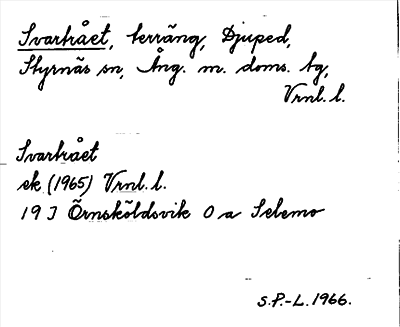 Svartrået, terräng, Djuped,
Styrnäs sn, Ång. m. doms. tg,
Vrnl. l.
Svartrået
ek (1965) Vrnl. l.
19 J Örnsköldsvik 0 a Selemo
S.P.-L. 1966.